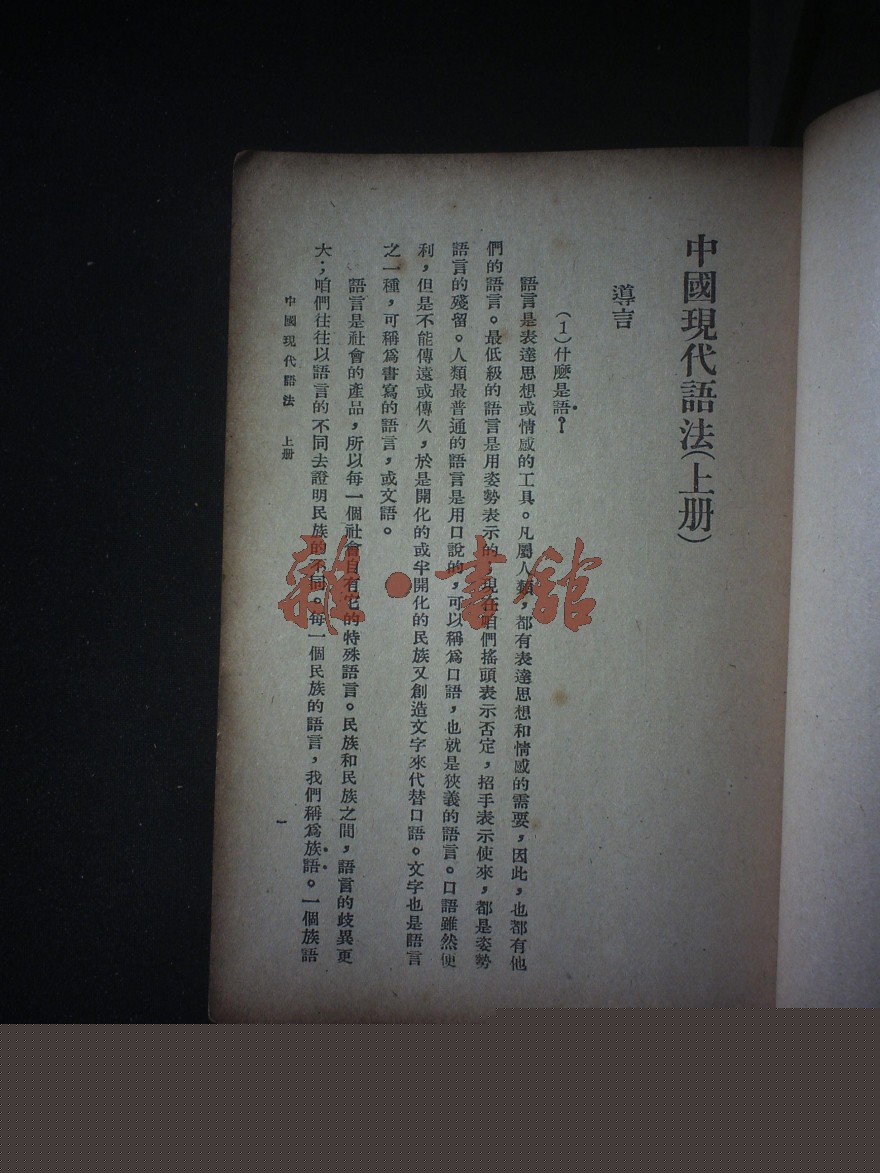 中國現代語法(上册)
導言
(1)什麽是語?
語言是表達思想或情感的工具。凡屬人類,都有表達思想和情感的需要,因此,也都有他
們的語言。最低級的語言是用姿勢表示的,現在咱們搖頭表示否定,招手表示使來,都是姿勢
語言的殘留。人類最普通的語言是用口說的,可以稱爲口語,也就是狹義的語言。口語雖然便
利,但是不能傳遠或傳久,於是開化的或半開化的民族又創造文字來代替口語。文字也是語言
之一種,可稱爲書寫的語言,或文語。
語言是社會的產品,所以每一個社會自有它的特殊語言。民族和民族之間,語言的歧異更
大;咱們往往以語言的不同去證明民族的不同。每一個民族的語言,我們稱爲族語。一個族語
中國現代語法 上册
一
雜·書館